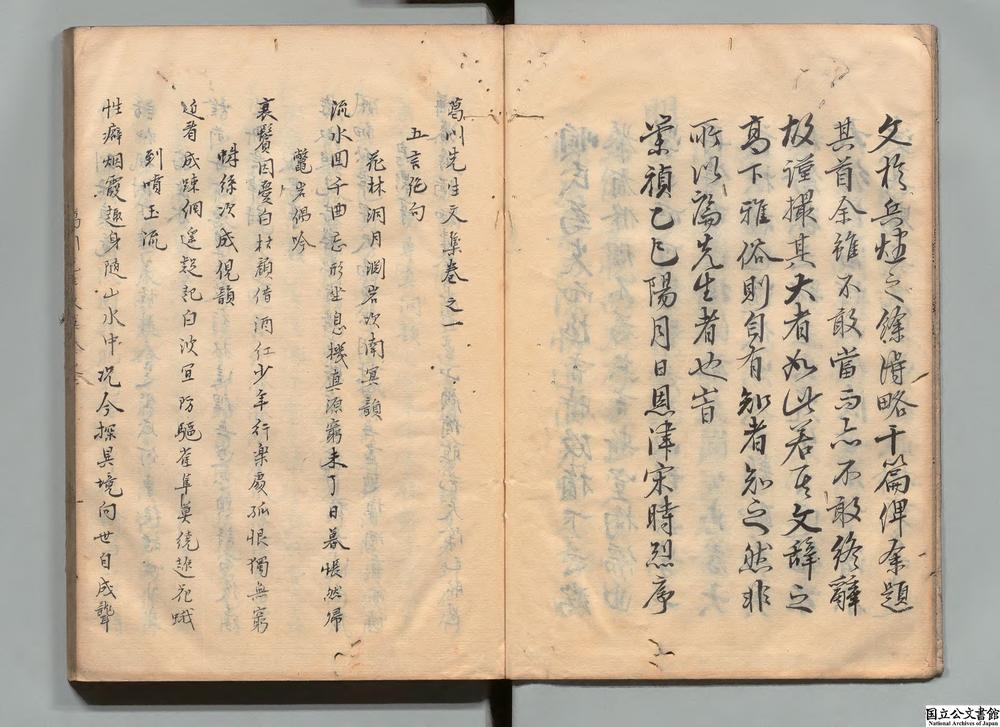 文於兵燹之餘得略干篇俾余題
其首余雖不敢當而亦不敢終辭
故謹撮其大者如此若其文辭之
高下雅俗則自有知者知之然非
所以論先生者也旹
崇禎乙巳陽月日恩津宋時烈序
葛川先生文集卷之一
五言絕句
花林洞月淵岩次南冥韻
流水回千曲忘形坐息機真源窮未了日暮悵然歸
鼈岩偶吟
衰鬢因憂白枯顏借酒紅少年行樂處孤恨獨無窮
蛛絲次成俔韻
近看成踈網遥疑記白波宜防驅雀隼莫繞趂花蛾
到噴玉流
性癖烟霞趣身隨山水中況今探異境向世自成聾
国立公文書館
National Archives of Japan